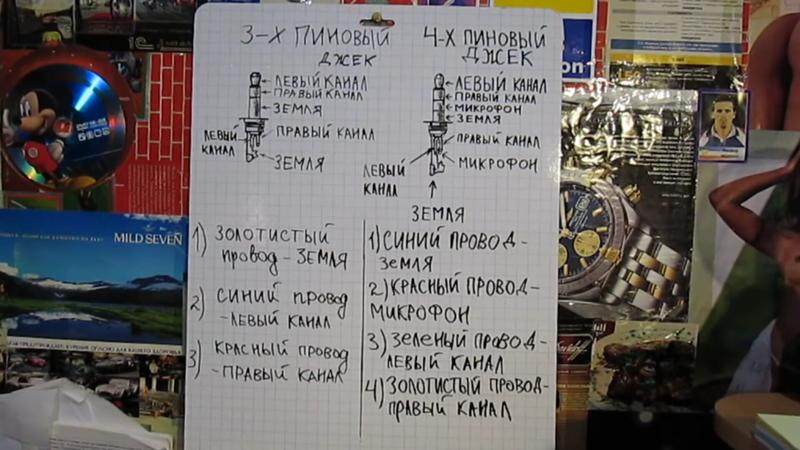 3-Х ПИНОВЫЙ
ДЖЕК
ЛЕВЫЙ КАНАЛ
ПРАВЫЙ КАНАЛ
ЗЕМЛЯ
ЛЕВЫЙ
КАНАЛ
ПРАВЫЙ КАНАЛ
ЗЕМЛЯ
4-Х ПИНОВЫЙ
ДЖЕК
ЛЕВЫЙ КАНАЛ
ПРАВЫЙ КАНАЛ
МИКРОФОН
ЗЕМЛЯ
ПРАВЫЙ КАНАЛ
МИКРОФОН
ЛЕВЫЙ
КАНАЛ
ЗЕМЛЯ
1) ЗОЛОТИСТЫЙ
провод - ЗЕМЛЯ
2) СИНИЙ провод
- ЛЕВЫЙ КАНАЛ
3) КРАСНЫЙ провод
- ПРАВЫЙ КАНАЛ
1) СИНИЙ ПРОВОД -
ЗЕМЛЯ
2) КРАСНЫЙ ПРОВОД -
МИКРОФОН
3) ЗЕЛЕНЫЙ ПРОВОД -
ЛЕВЫЙ КАНАЛ
4) ЗОЛОТИСТЫЙ ПРОВОД -
ПРАВЫЙ КАНАЛ
MILD SEVEN